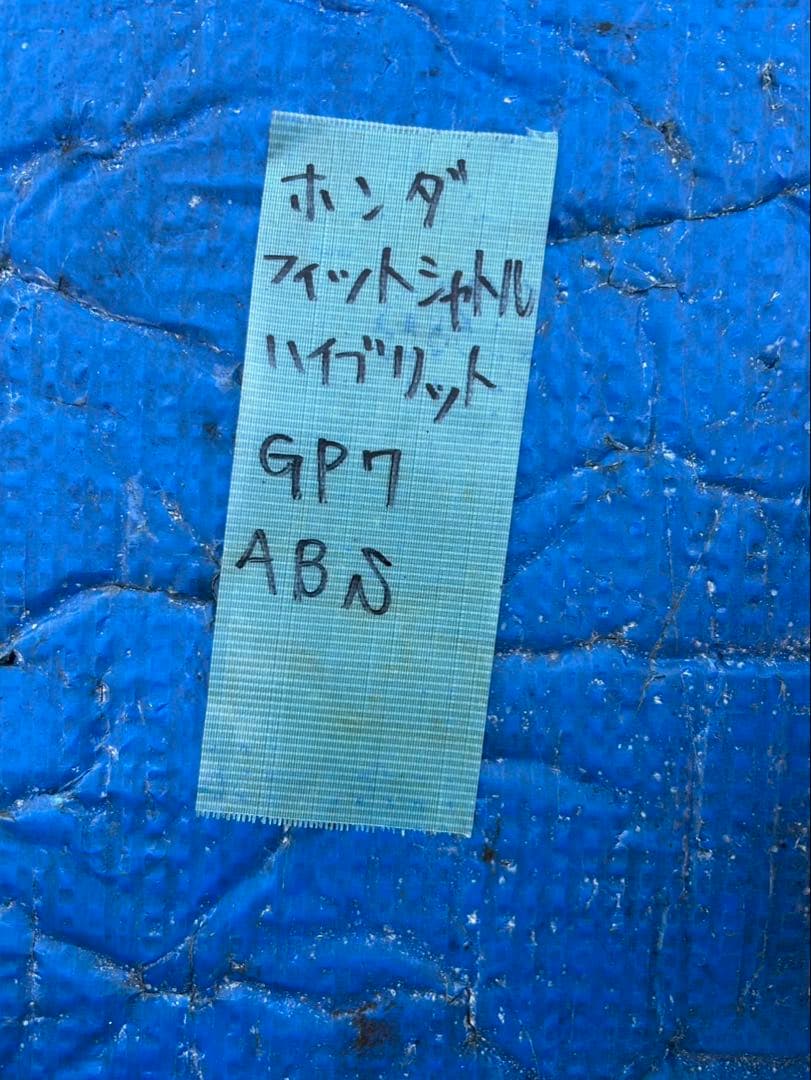 ホンダ
フィットシャトル
ハイブリット
GP7
ABS